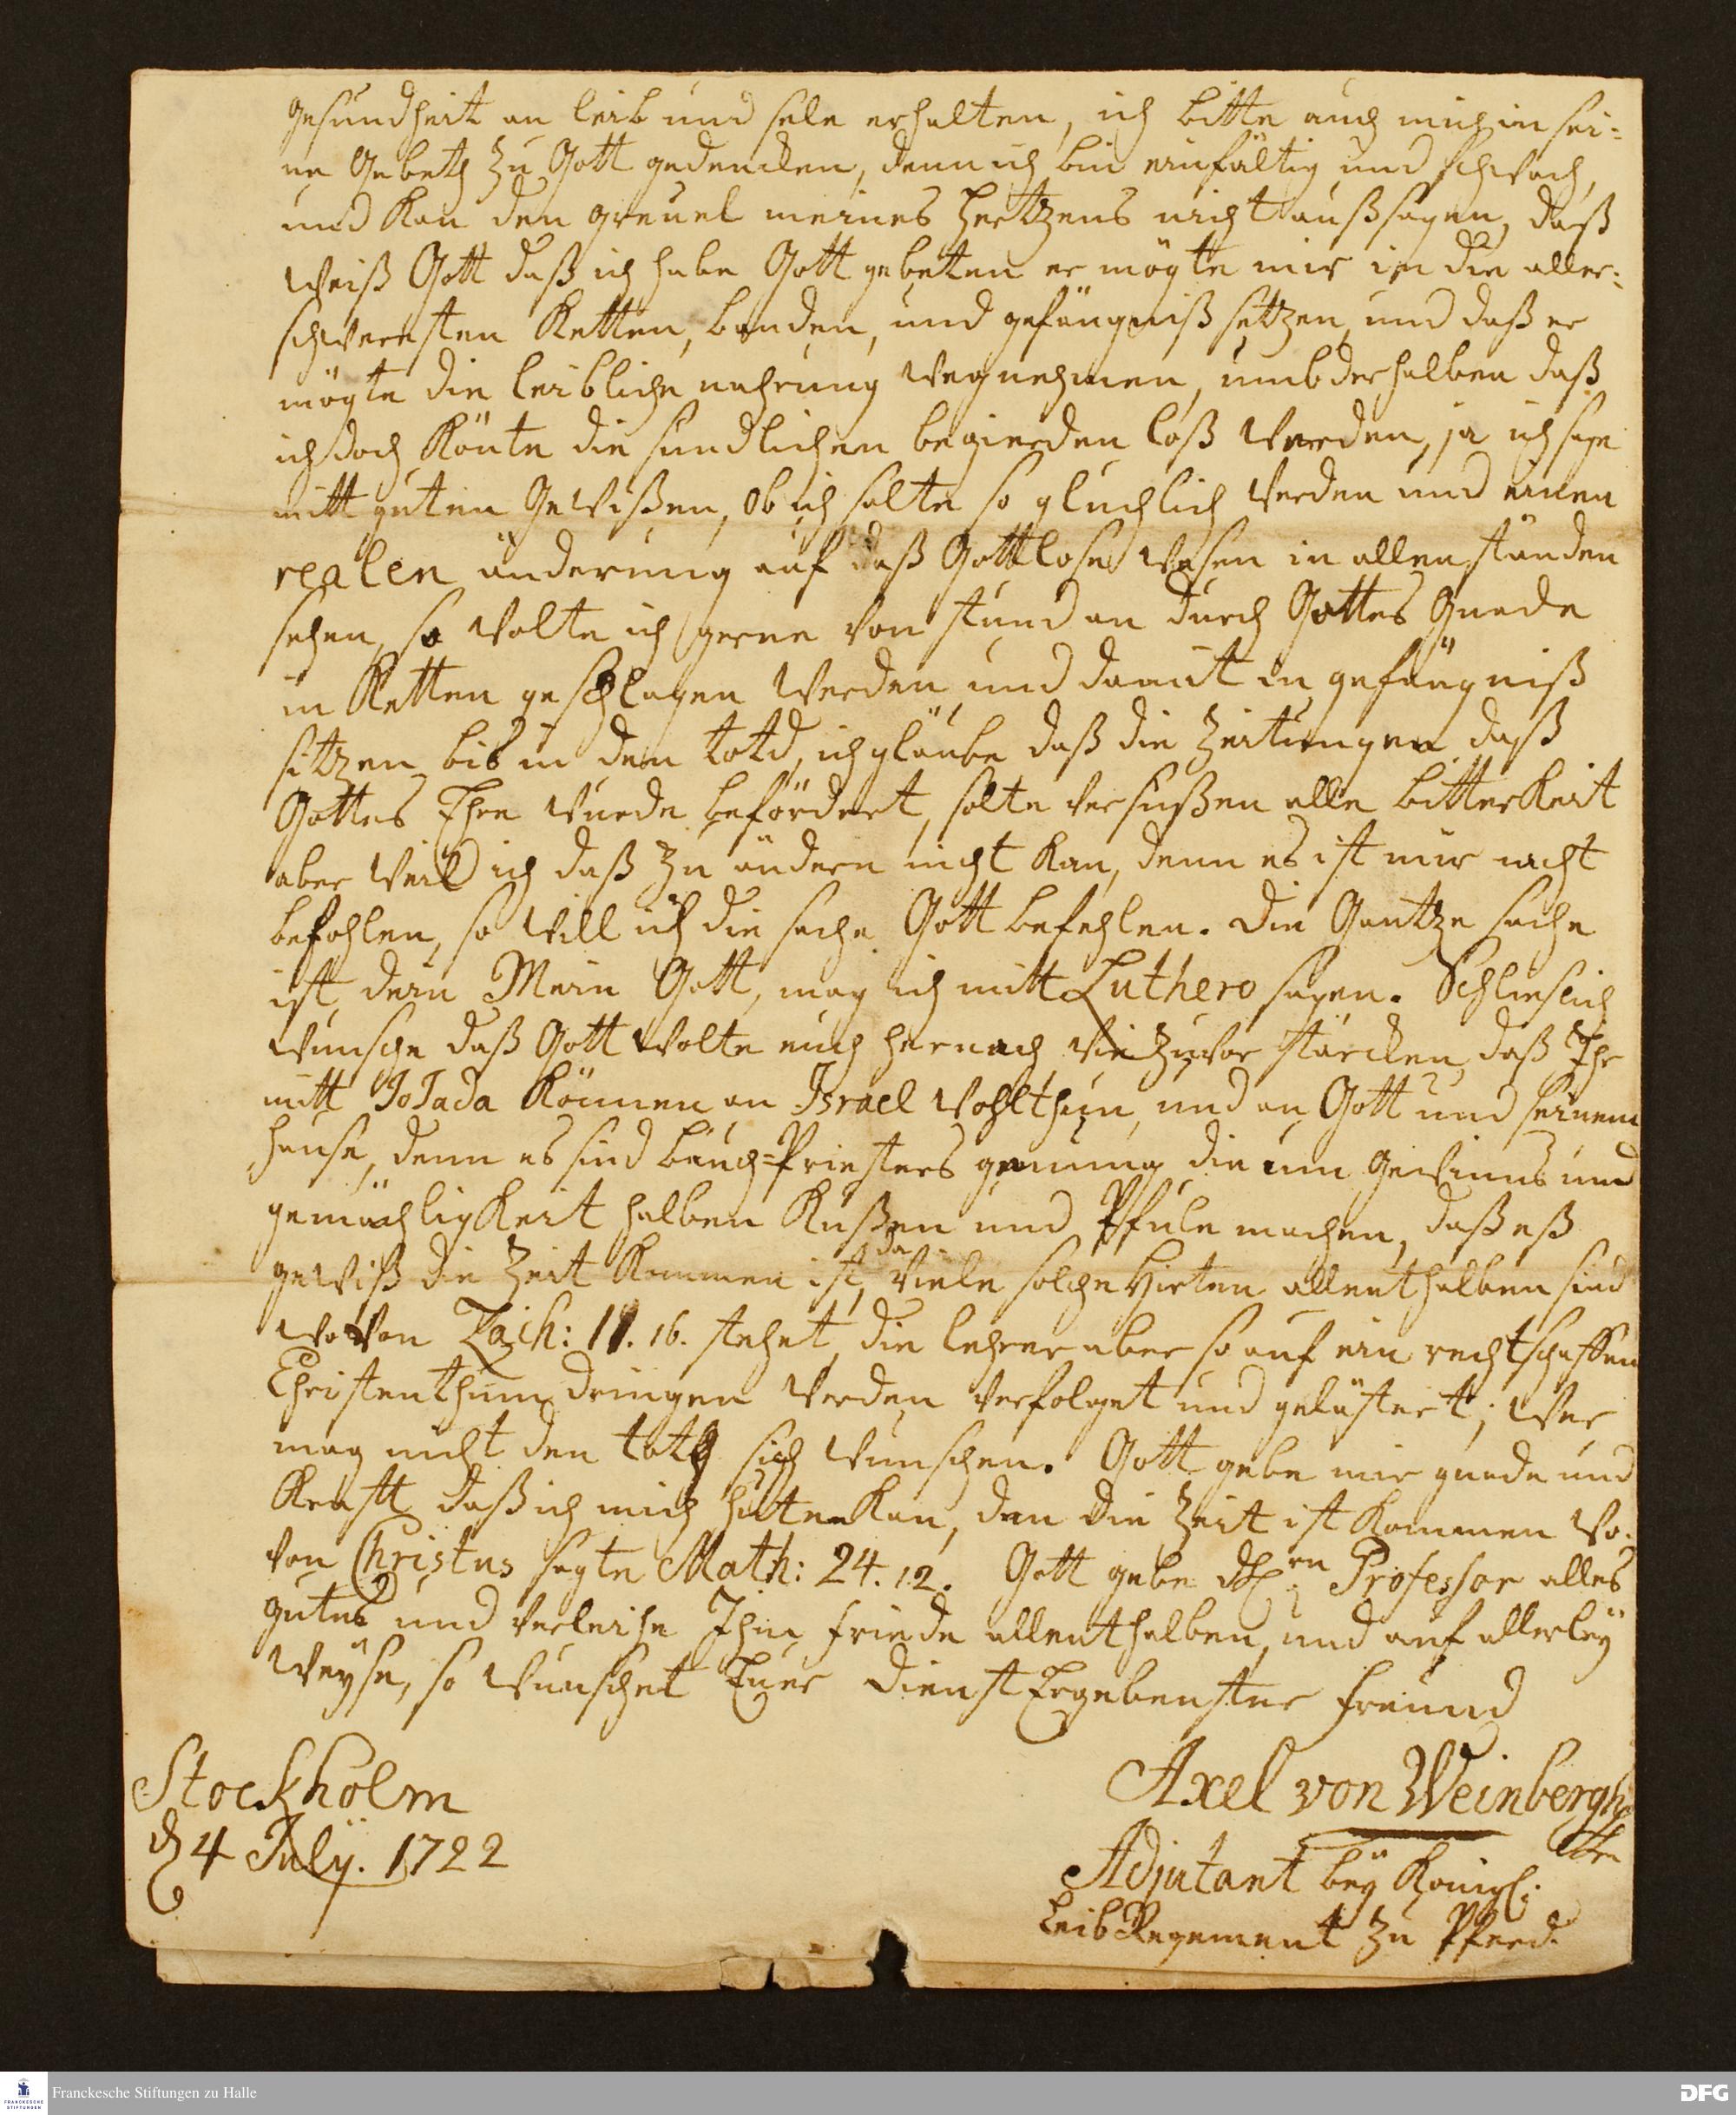 gesundheit an leib und sele erhalten, ich bitte auch mich in sei-
ne Gebeth zu Gott gedencken, denn ich bin einfältig und schwach,
und kan den greuel meines Hertzens nicht außsagen, daß
weiß Gott daß ich habe Gott gebeten er mögte mir in die aller-
schweresten Ketten, banden, und gefängniß setzen, und daß er
mögte die leibliche nahrung wegnehmen, umb der halben daß
ich doch könte die sundlichen begierden loß werden, ja ich sage
mitt guten Gewißen, ob ich solte so gluchlich werden und einen
realen änderung auf daß Gottlose wesen in allen ständen
sehen, so wolte ich gerne von stund an durch Gottes Gnade
in Ketten geschlagen werden und damit in gefängniß
sitzen biß in den totd, ich gläube daß die Zeitungen daß
Gottes Ehre wurde befördert, solte versußen alle bitterkeit
aber weil ich daß zu ändern nicht kan, denn es ist mir nicht
befohlen, so will ich die sache Gott befehlen. Die Gantze sache
ist, dein Mein Gott, mag ich mitt Luthero sagen. Schlieslich
wunsche daß Gott wolte euch hernach wie zuvor stärcken, daß Ihr
mitt JoJada können an Israel wohlthun, und an Gott und seinem
hause, denn es sind bäuch-Priesters genung die um Gewinns und
gemächligkeit halben Kußen und Pfule machen, daß eß
gewiß die Zeit kommen ist, da viele solche Hirten allenthalben sind
wovon Zach: 11. 16. stehet, die lehrer aber so auf ein rechtschaffen
Christenthum dringen werden verfolget und gelästert; wer
mag nicht den toth sich wunschen. Gott gebe mir gnade und
Krafft daß ich mich hüten kan, den die Zeit ist kommen wo-
von Christus sagte Math: 24. 12. Gott gebe dHern Professor alles
gutes und verleihe Ihm friede allenthalben, und auf allerleÿ
Weÿse, so wunschet Euer dienst Ergebenster freund
Stockholm
d 4 Julÿ. 1722
Axel von Weinbergh
Adjutant beÿ Königl:
Leib Regement zu Pferd.
Franckesche Stiftungen zu Halle
FRANCKESCHE STIFTUNGEN
DFG